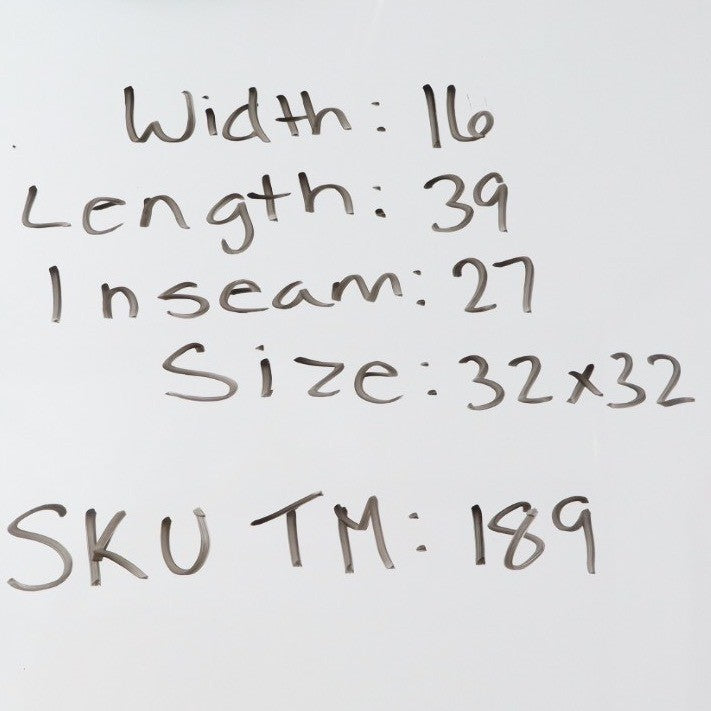 Width: 16
Length: 39
Inseam: 27
Size: 32x32
SKU TM: 189